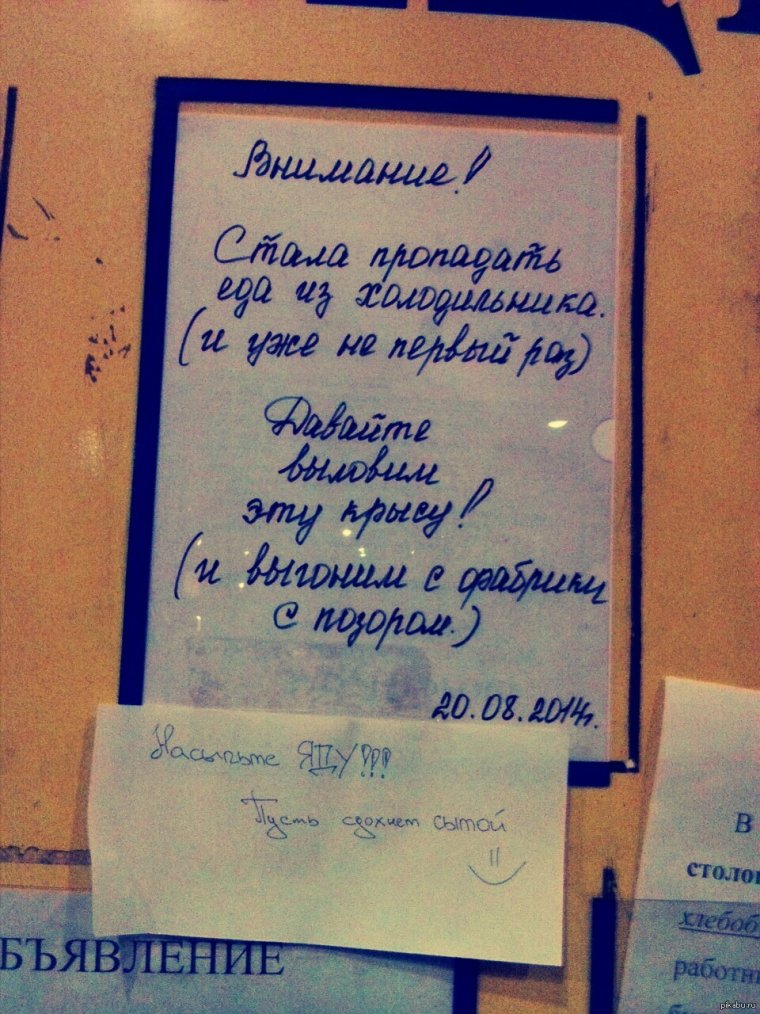 Внимание!
Стала пропадать
еда из холодильника.
(и уже не первый раз)
Давайте
выловим
эту крысу!
(и выгоним с фабрики
с позором.)
20.08.2014г.
Насыпьте ЯДУ!!!
Пусть сдохнет сытой
БЪЯВЛЕНИЕ
В
столо
хлебоб
работн
pikabu.ru